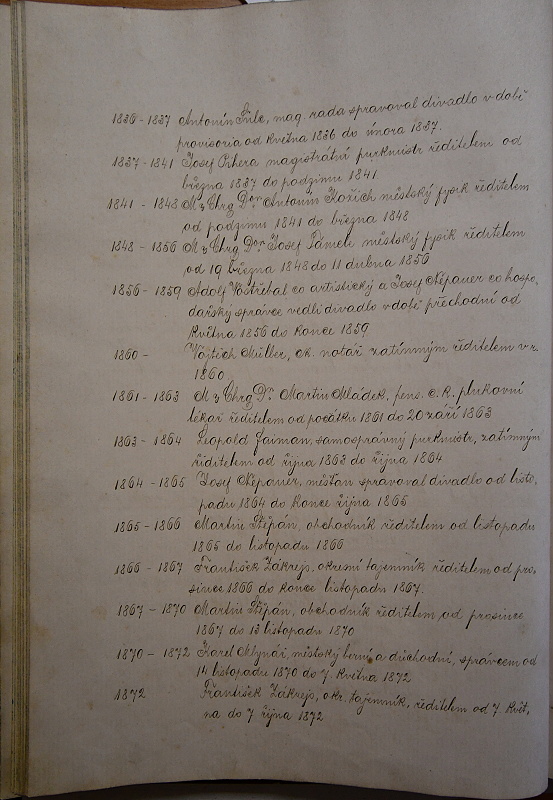 1836 - 1837 Antonín Fülc, mag. rada spravoval divadlo v době
provisoria od května 1836 do února 1837.
1837 - 1841 Josef Příhera magistrátní purkmistr ředitelem od
března 1837 do podzimu 1841
1841 - 1848 M. Chrg Dr. Antonín Kořích městský fysik ředitelem
od podzimu 1841 do března 1848
1848 - 1856 M. Chrg Dr. Josef městský fysik ředitelem
od 19 března 1848 do 11 dubna 1856
1856 - 1859 Adolf Vostřebal co artistický a Josef Nepauer co hospo,
dářský správce vedli divadlo v době přechodní od
května 1856 do konce 1859
1860 - Vojtěch Müller, ck. notář zatímným ředitelem v r.
1860
1861 - 1863 M. Chrg Dr. Martin Mládek, pens. c. k. plukovní
lékař ředitelem od počátku 1861 do 20 září 1863
1863 - 1864 Leopold Faiman, samosprávný purkmistr, zatímným
ředitelem od října 1863 do října 1864
1864 - 1865 Josef Nepauer, měšťan spravoval divadlo od listo,
padu 1864 do konce října 1865
1865 - 1866 Martin Štěpán, obchodník ředitelem od listopadu
1865 do listopadu 1866
1866 - 1867 František Zákrejs, okresní tajemník ředitelem od pro,
since 1866 do konce listopadu 1867.
1867 - 1870 Martin Štěpán, obchodník ředitelem od prosince
1867 do 13 listopadu 1870
1870 - 1872 Karel Mlynář, městský berní a důchodní, správcem od
14 listopadu 1870 do 7. května 1872
1872 František Zákrejs, okr. tajemník, ředitelem od 7. květ,
na do 7 října 1872